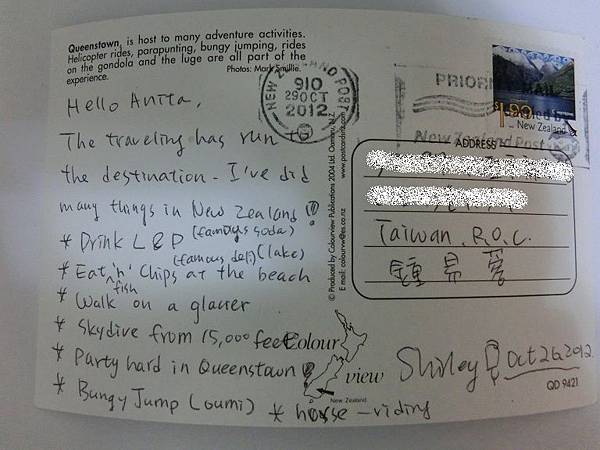 Queenstown, is host to many adventure activities.
Helicopter rides, parapunting, bungy jumping, rides
on the gondola and the luge are all part of the
experience.
Photos: Mark Smillie.
Hello Anita,
The traveling has run to
the destination - I've did
many things in New Zealand!!
* Drink L & P (famous soda)
* Eat fish 'n' chips at the beach (lake)
(famous deli)
* Walk on a glacier
* Skydive from 15,000 feet
* Party hard in Queenstown!
* Bungy Jump (oumi) * horse-riding
© Produced by Colourview Publications 2004 Ltd. Oamaru N.Z.
E mail: colourvw@es.co.nz
www.postcardnz.com
NEW ZEALAND POST
910
29 OCT
2012
PRIORITY MAIL
$1.90
New Zealand
New Zealand Post
ADDRESS
Taiwan, R.O.C.
鍾
Colour
view
New Zealand
Shirley Oct 26 2012
QD 9421